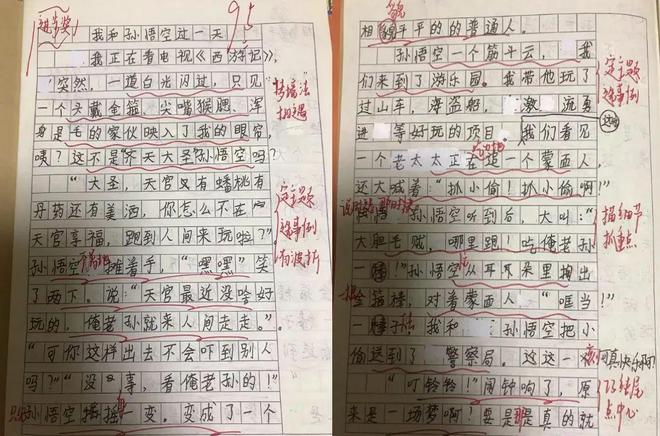 进步奖
95
我和孙悟空过一天
我正在看电视《西游记》,
突然,一道白光闪过,只见
一个头戴金箍、尖嘴猴腮、浑
身是毛的家伙映入了我的眼帘,
咦?这不是“齐天大圣”孙悟空吗?
“大圣,天宫又有蟠桃有
丹药还有美酒,你怎么不在
天宫享福,跑到人间来玩啦?”
孙悟空摊着手,“嘿嘿”笑
了两下。说:“天宫最近没啥好
玩的,俺老孙就来人间走走。”
“可你这样出去不会吓到别人
吗?”“没事,看俺老孙的!”
只见孙悟空摇摇一变,变成了一个
相遇
定主题
选事例
有波折
相貌平平的的普通人。
孙悟空一个筋斗云,我
们来到了游乐园。我带他玩了
过山车,海盗船,激流勇
进等好玩的项目。我们看见
一个老太太正在追一个蒙面人,
还大喊着:“抓小偷!抓小偷啊!”
孙悟空听到后,大叫:“
大胆毛贼,哪里跑!吃俺老孙
一棒!”孙悟空从耳朵里掏出
金箍棒,对着蒙面人,“哐当!”
一棒子!我和孙悟空把小
偷送到了警察局。这一
“叮铃铃!”闹钟响了,原
来是一场梦啊!要是那是真的就
定主题
选事例
描细节
抓重点
可真快乐啊!
巧结尾
点中心